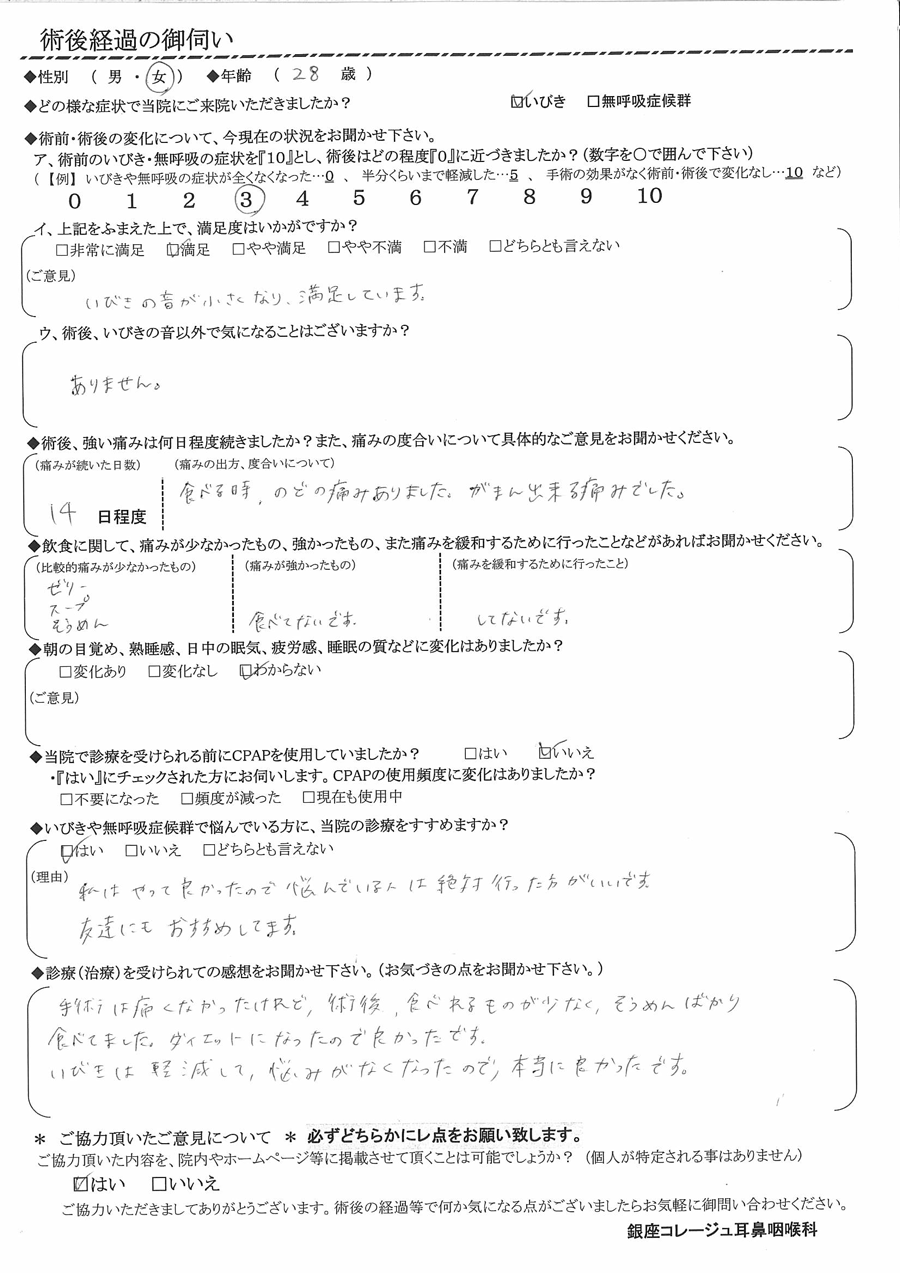 術後経過の御伺い
◆性別 ( 男 ・ 女 ) ◆年齢 ( 28 歳 )
◆どの様な症状で当院にご来院いただきましたか? ☑いびき □無呼吸症候群
◆術前・術後の変化について、今現在の状況をお聞かせ下さい。
ア、術前のいびき・無呼吸の症状を『10』とし、術後はどの程度『0』に近づきましたか?(数字を○で囲んで下さい)
(【例】いびきや無呼吸の症状が全くなくなった…0 、 半分くらいまで軽減した…5 、 手術の効果がなく術前・術後で変化なし…10 など)
0 1 2 3 4 5 6 7 8 9 10
イ、上記をふまえた上で、満足度はいかがですか?
□非常に満足 ☑満足 □やや満足 □やや不満 □不満 □どちらとも言えない
(ご意見)
いびきの音が小さくなり、満足しています。
ウ、術後、いびきの音以外で気になることはございますか?
ありません。
◆術後、強い痛みは何日程度続きましたか?また、痛みの度合いについて具体的なご意見をお聞かせください。
(痛みが続いた日数) (痛みの出方、度合いについて)
食べる時、のどの痛みありました。がまん出来る痛みでした。
14 日程度
◆飲食に関して、痛みが少なかったもの、強かったもの、また痛みを緩和するために行ったことなどがあればお聞かせください。
(比較的痛みが少なかったもの) (痛みが強かったもの) (痛みを緩和するために行ったこと)
ゼリー
スープ
そうめん 食べてないです。 してないです。
◆朝の目覚め、熟睡感、日中の眠気、疲労感、睡眠の質などに変化はありましたか?
□変化あり □変化なし ☑わからない
(ご意見)
◆当院で診療を受けられる前にCPAPを使用していましたか? □はい ☑いいえ
・『はい』にチェックされた方にお伺いします。CPAPの使用頻度に変化はありましたか?
□不要になった □頻度が減った □現在も使用中
◆いびきや無呼吸症候群で悩んでいる方に、当院の診療をすすめますか?
☑はい □いいえ □どちらとも言えない
(理由)
私はやって良かったので悩んでいる人は絶対行った方がいいです
友達にもおすすめしてます。
◆診療(治療)を受けられての感想をお聞かせ下さい。(お気づきの点をお聞かせ下さい。)
手術は痛くなかったけれど、術後、食べれるものが少なく、そうめんばかり
食べてました。ダイエットになったので良かったです。
いびきは軽減して、悩みがなくなったので、本当に良かったです。
＊ ご協力頂いたご意見について ＊ 必ずどちらかにレ点をお願い致します。
ご協力頂いた内容を、院内やホームページ等に掲載させて頂くことは可能でしょうか? (個人が特定される事はありません)
☑はい □いいえ
ご協力いただきましてありがとうございます。術後の経過等で何か気になる点がございましたらお気軽に御問い合わせください。
銀座コレージュ耳鼻咽喉科